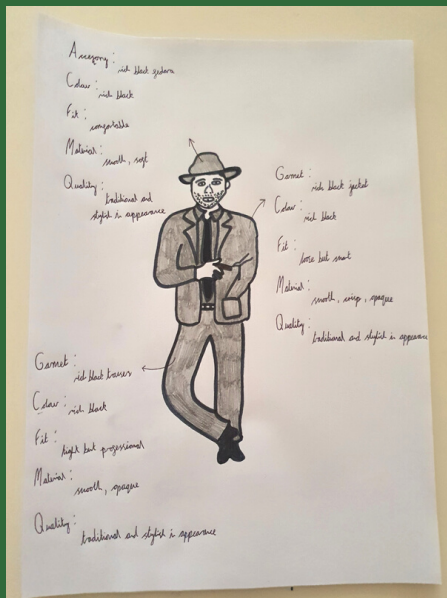 Accessory:
rich black fedora
Colour:
rich black
Fit:
comfortable
Material:
smooth, soft
Quality:
traditional and
stylish in appearance
Garment:
rich black jacket
Colour:
rich black
Fit:
loose but smart
Material:
smooth, crisp, opaque
Quality:
traditional and stylish in appearance
Garment:
rich black trousers
Colour:
rich black
Fit:
tight but professional
Material:
smooth, opaque
Quality:
traditional and stylish in appearance